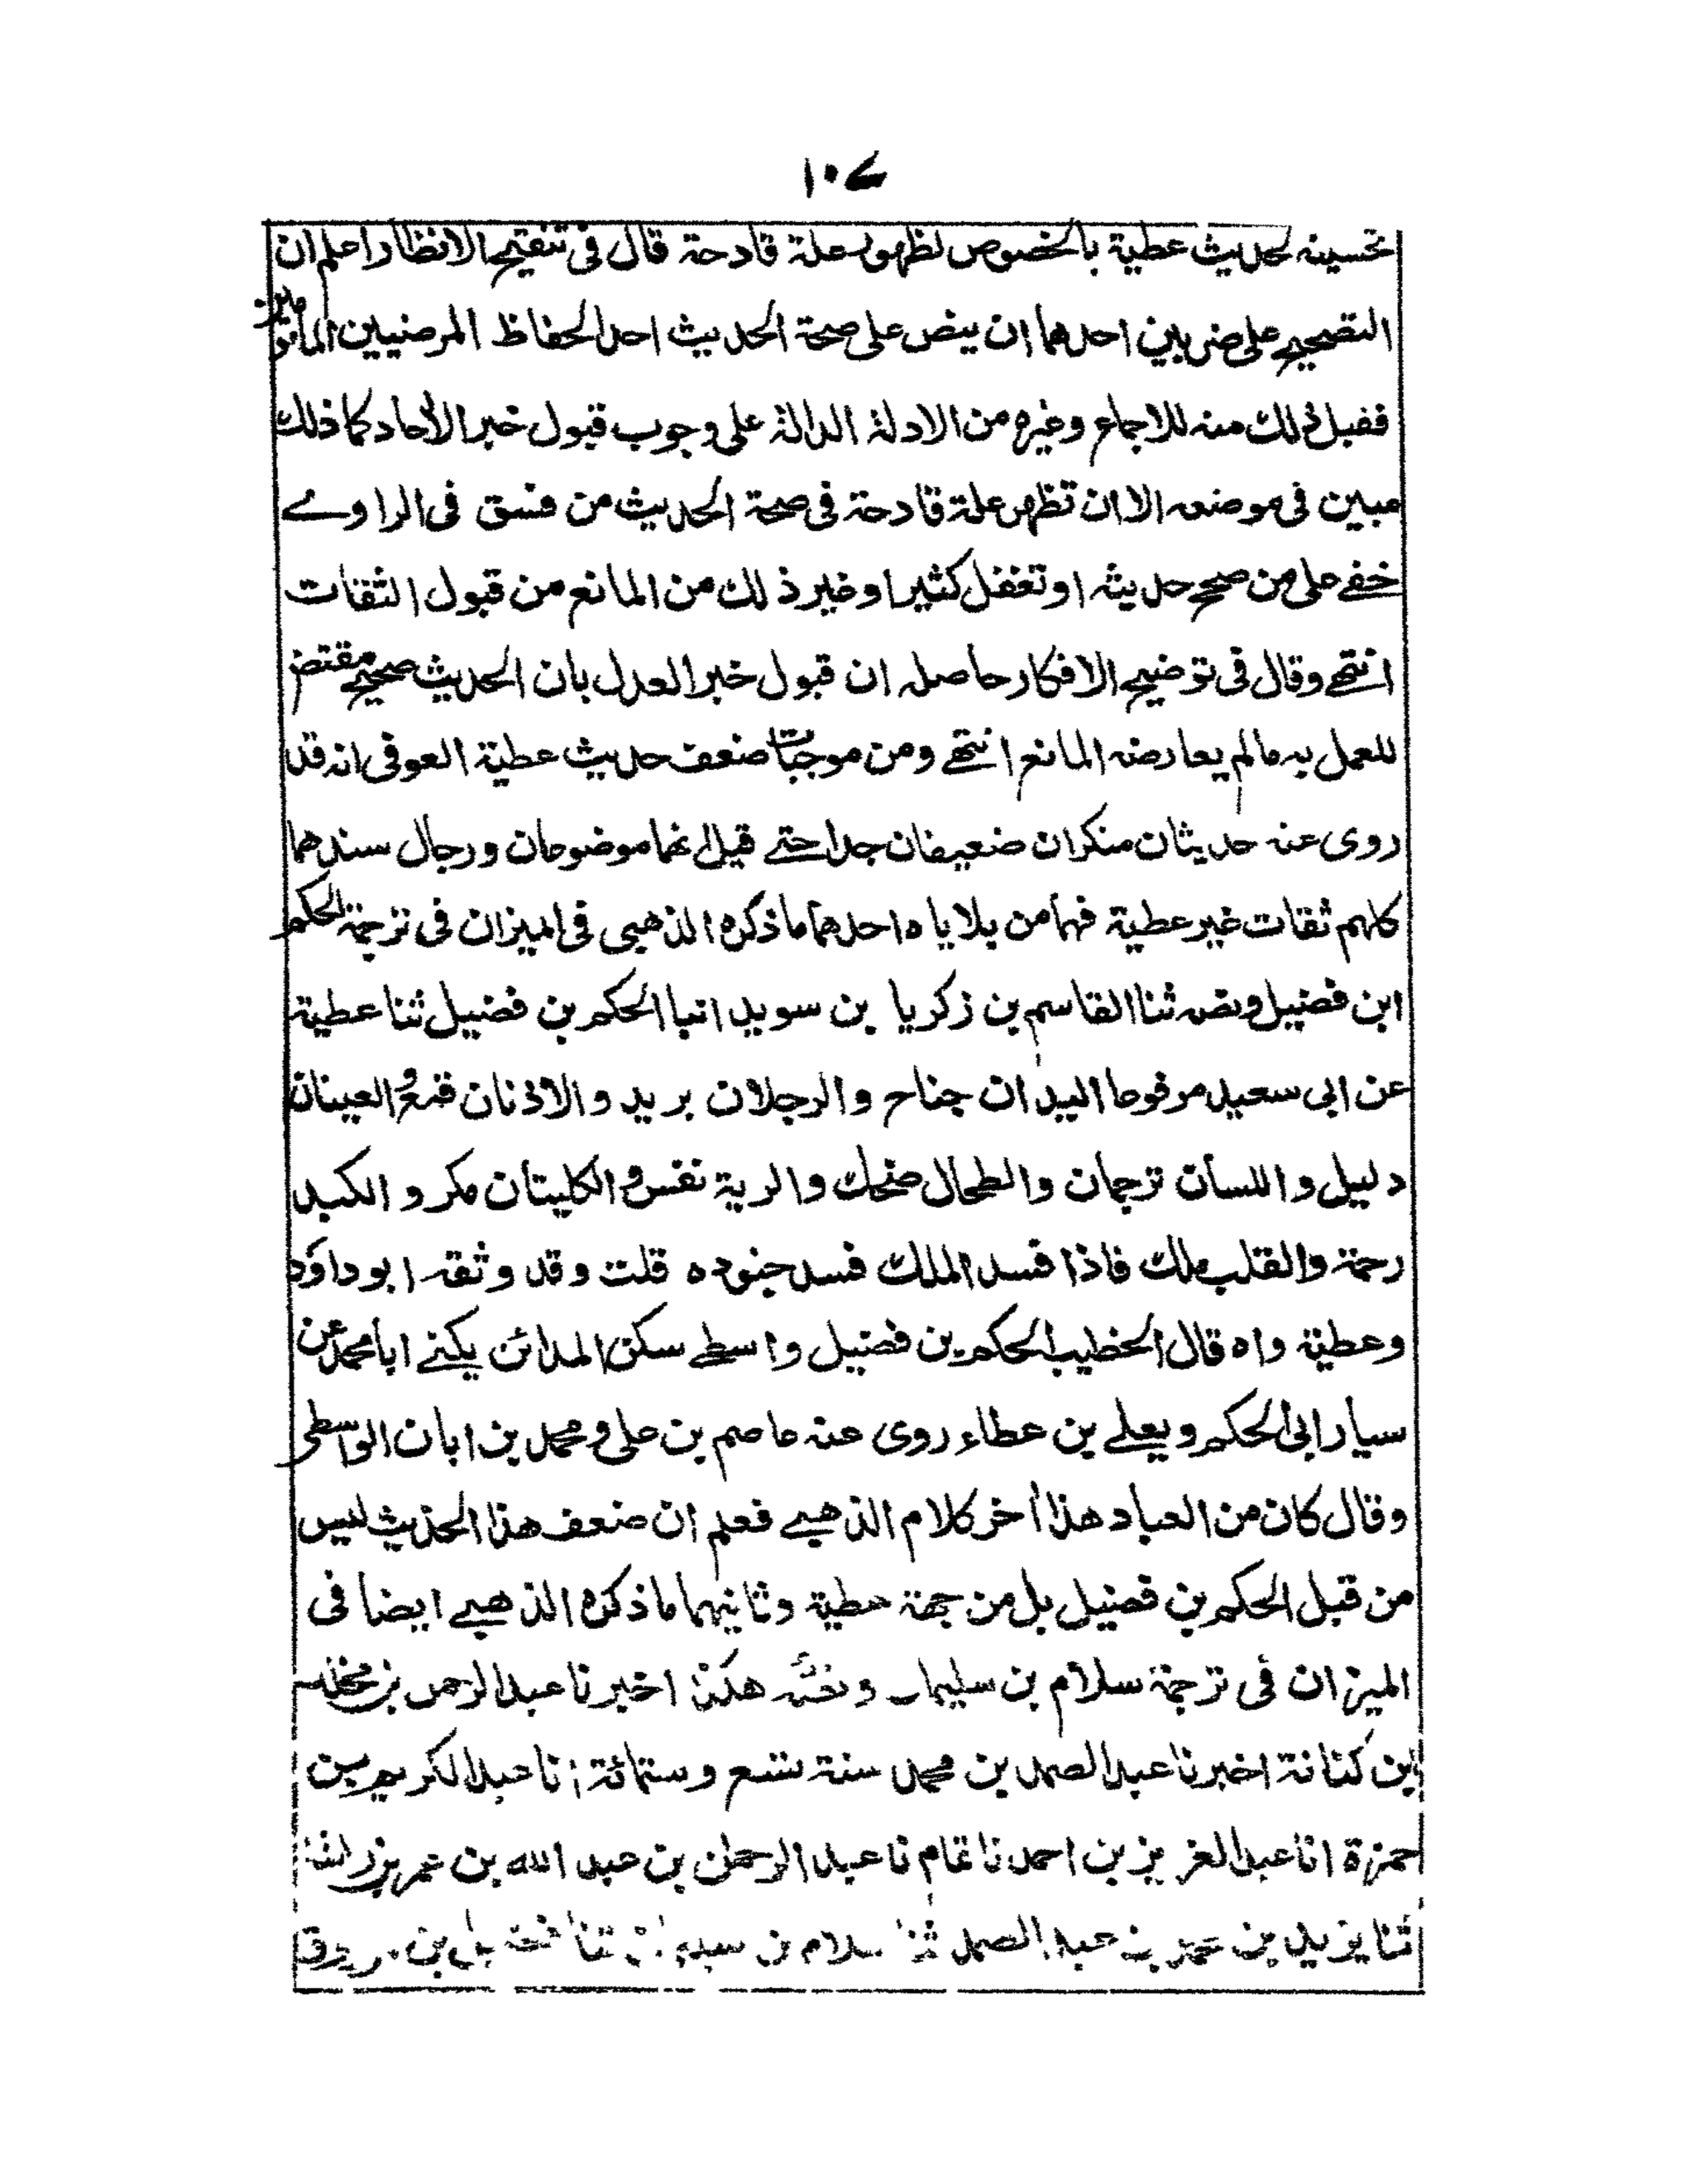 ١٠٧
تحسينه لحديث عطية بالخصوص لظهور علة قادحة قال فى تنقيح الانظار اعلم ان
التصحيح على ضربين احدهما ان ينص على صحة الحديث احد الحفاظ المرضيين المامونين
فقبل ذلك منه للاجماع وغيره من الادلة الدالة على وجوب قبول خبر الآحاد كما ذلك
مبين فى موضعه الا ان تظهر علة قادحة فى صحة الحديث من فسق فى الراوے
خفے على من صحح حديثه او تغفل كثير او غير ذلك من المانع من قبول الثقات
انتهے وقال فى توضيح الافكار حاصله ان قبول خبر العدل بان الحديث صحيح مقتض
للعمل به مالم يعارضه المانع انتهے ومن موجبات ضعف حديث عطية العوفى انه قد
روى عنه حديثان منكران ضعيفان جدا حتے قيل انهما موضوعان ورجال سندهما
كلهم ثقات غير عطية فهما من بلاياه احدهما ما ذكره الذهبى فى الميزان فى ترجمة الحكم
ابن فضيل ونصه ثنا القاسم بن زكريا بن سويد انبا الحكم بن فضيل ثنا عطية
عن ابى سعيد مرفوعا اليدان جناح والرجلان بريد والاذنان قمع والعينان
دليل واللسان ترجمان والطحال ضحك والرية نفس والكليتان مكر والكبد
رحمة والقلب ملك فاذا فسد الملك فسد جنوده قلت وقد وثقه ابو داؤد
وعطية واه قال الخطيب الحكم بن فضيل واسطے سكن المدائن يكنے ابا محمد عن
سيار ابى الحكم ويعلے بن عطاء روى عنه عاصم بن على ومحمد بن ابان الواسطى
وقال كان من العباد هذا آخر كلام الذهبے فعلم ان ضعف هذا الحديث ليس
من قبل الحكم بن فضيل بل من جهة عطية وثانيهما ما ذكره الذهبے ايضا فى
الميزان فى ترجمة سلام بن سليمان ونصه هكذا اخبرنا عبد الرحمن بن مخلد
ابن كنانة اخبرنا عبد الصمد بن محمد سنة تسع وستمائة انا عبد الكريم بن
حمزة انا عبد العزيز بن احمد نا تمام نا عبد الرحمن بن عبد الله بن عمر بن راشد
ثنا يزيد بن عبد الصمد ثنا سلام بن سليمان ثنا فضيل بن مرزوق